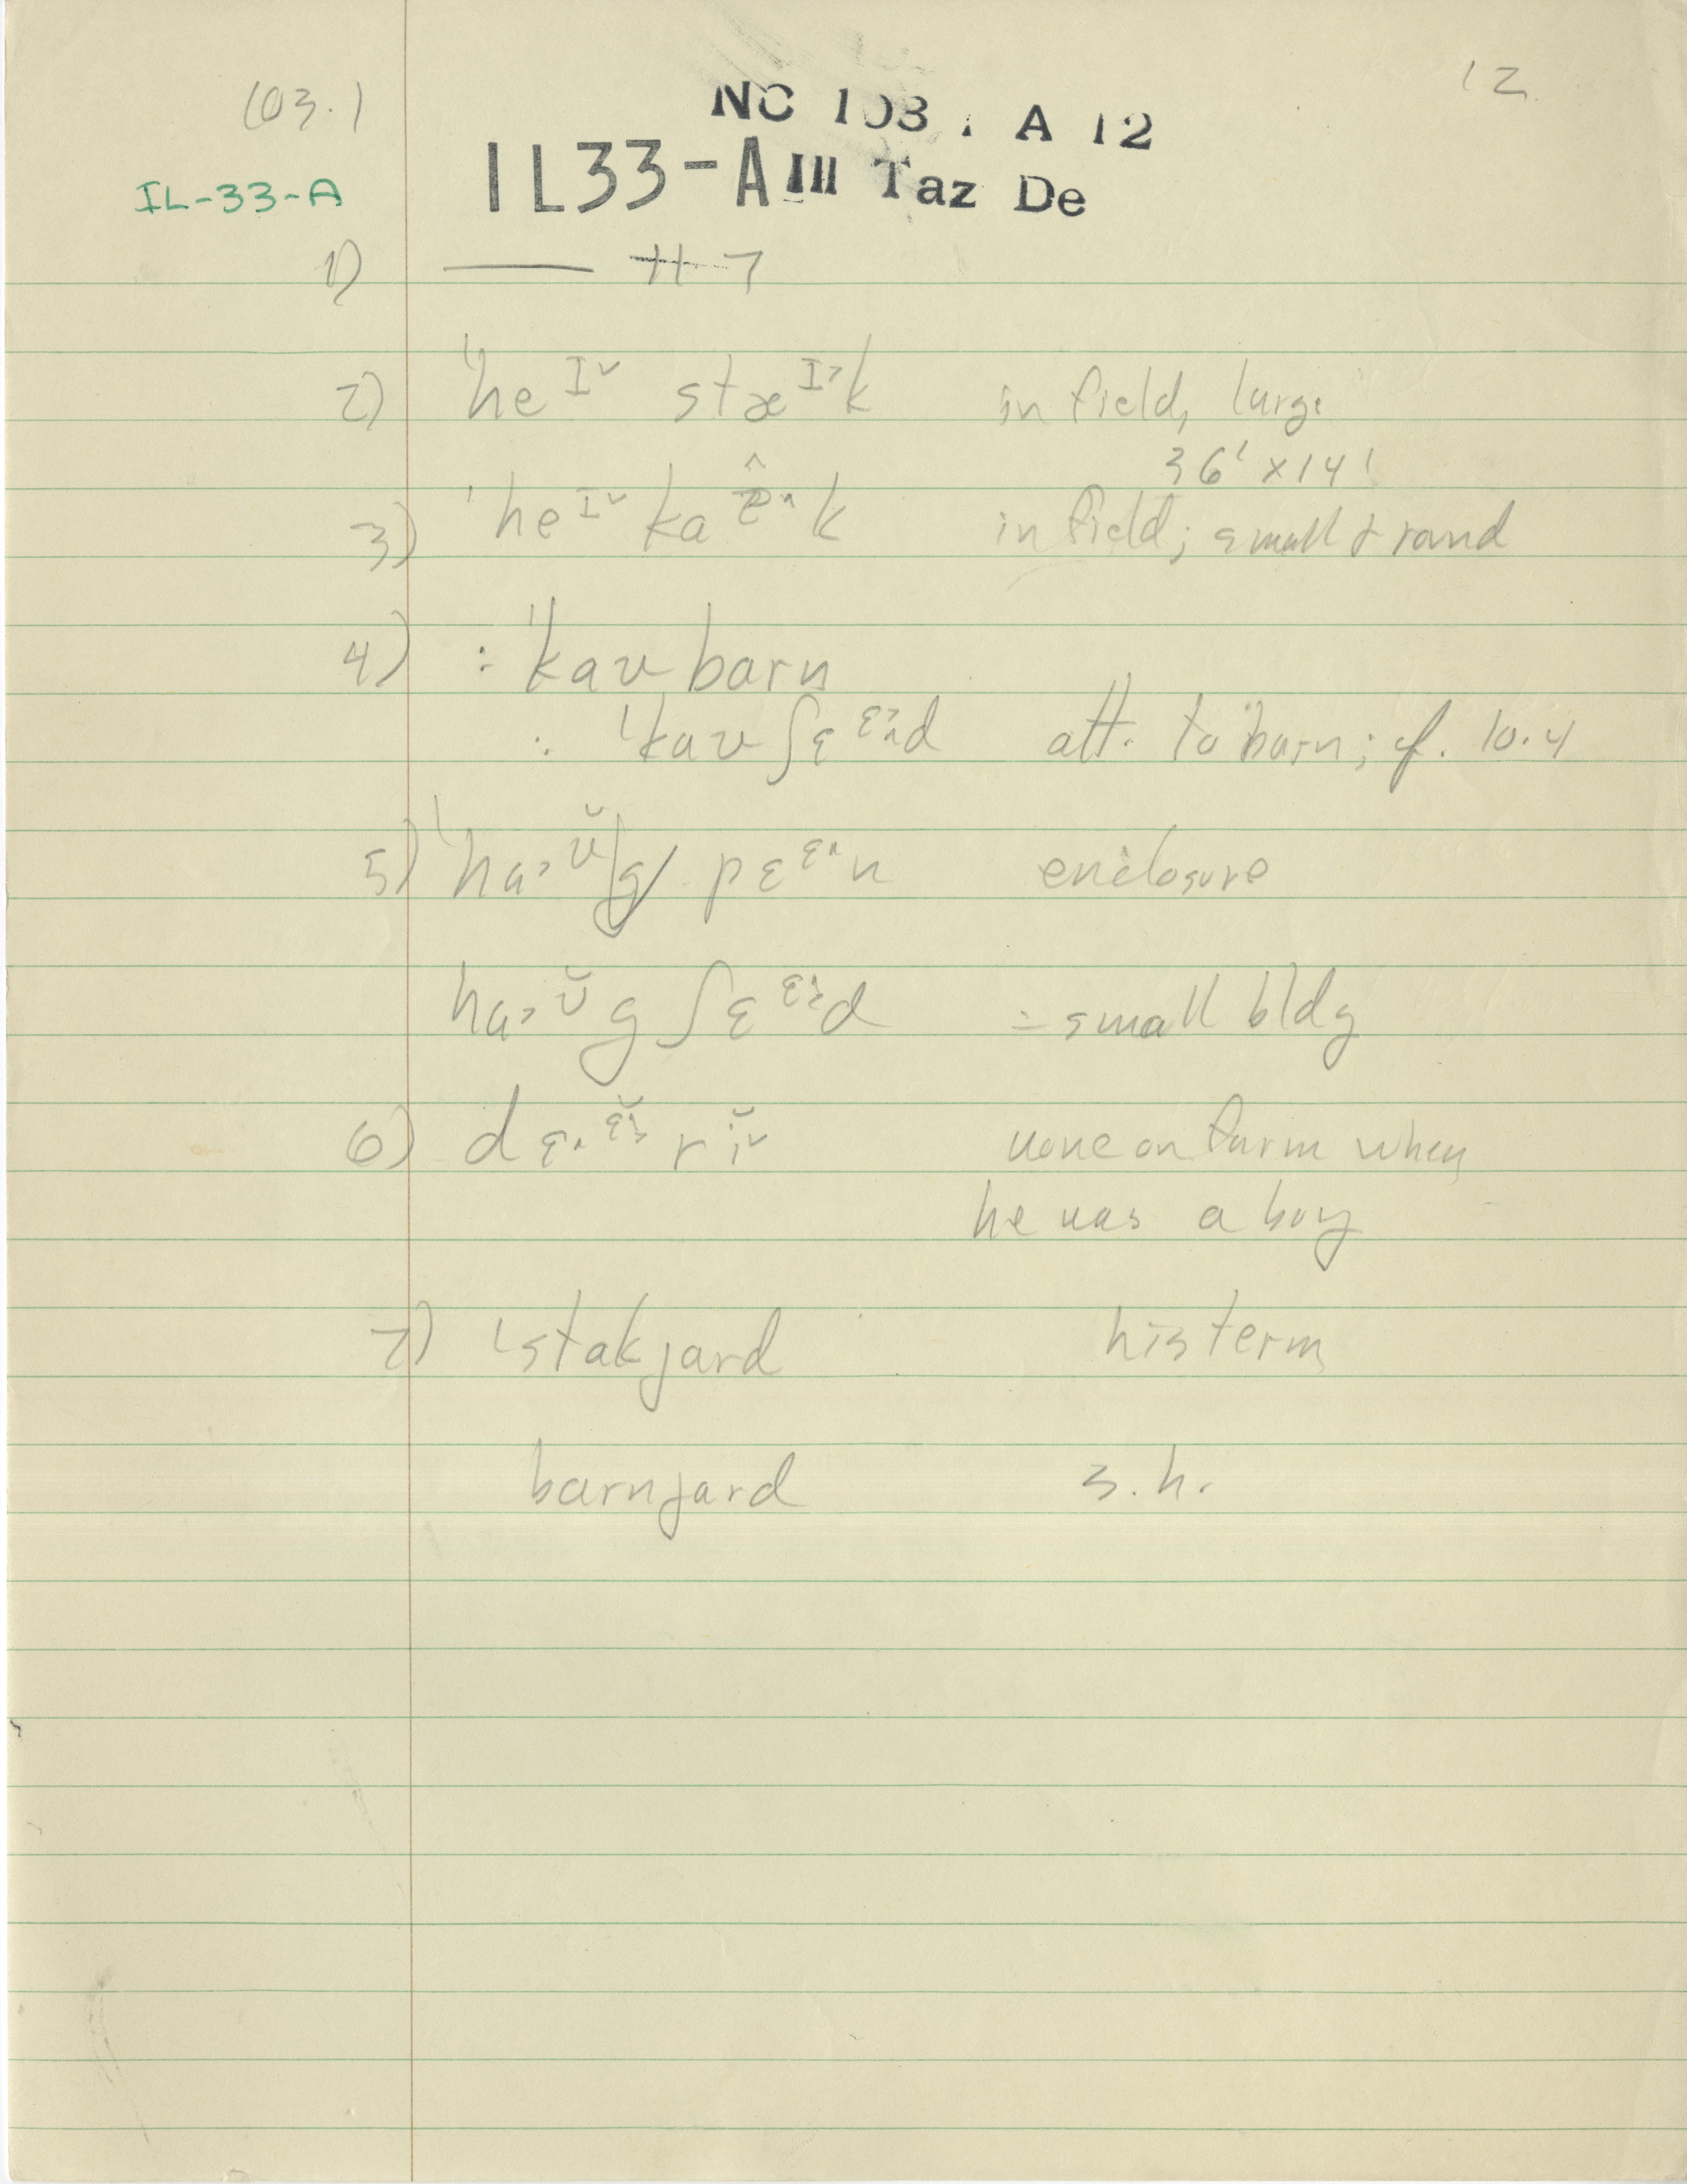 103.1
12
NC 103.1 A 12
IL-33-A
IL33-A III Taz De
1) —— H 7
2) ˈhe ᴵ˅ stæ ᴵ˃k in field, large
36' x 14'
3) ˈhe ᴵ˅ ka k in field; small & round
4) : ˈkaʊ barn
: ˈkaʊ ʃɛ ᵋd att. to barn; cf. 10.4
5) ˈhɑ˃ ᶷ̆g pɛ ᵋ˄n enclosure
hɑ˃ ᶷ̆g ʃɛ ᵋd = small bldg
6) dɛ˄ ᵋ̆ rĭ˅ none on farm when
he was a boy
7) ˈstakjard his term
barnjard s.h.